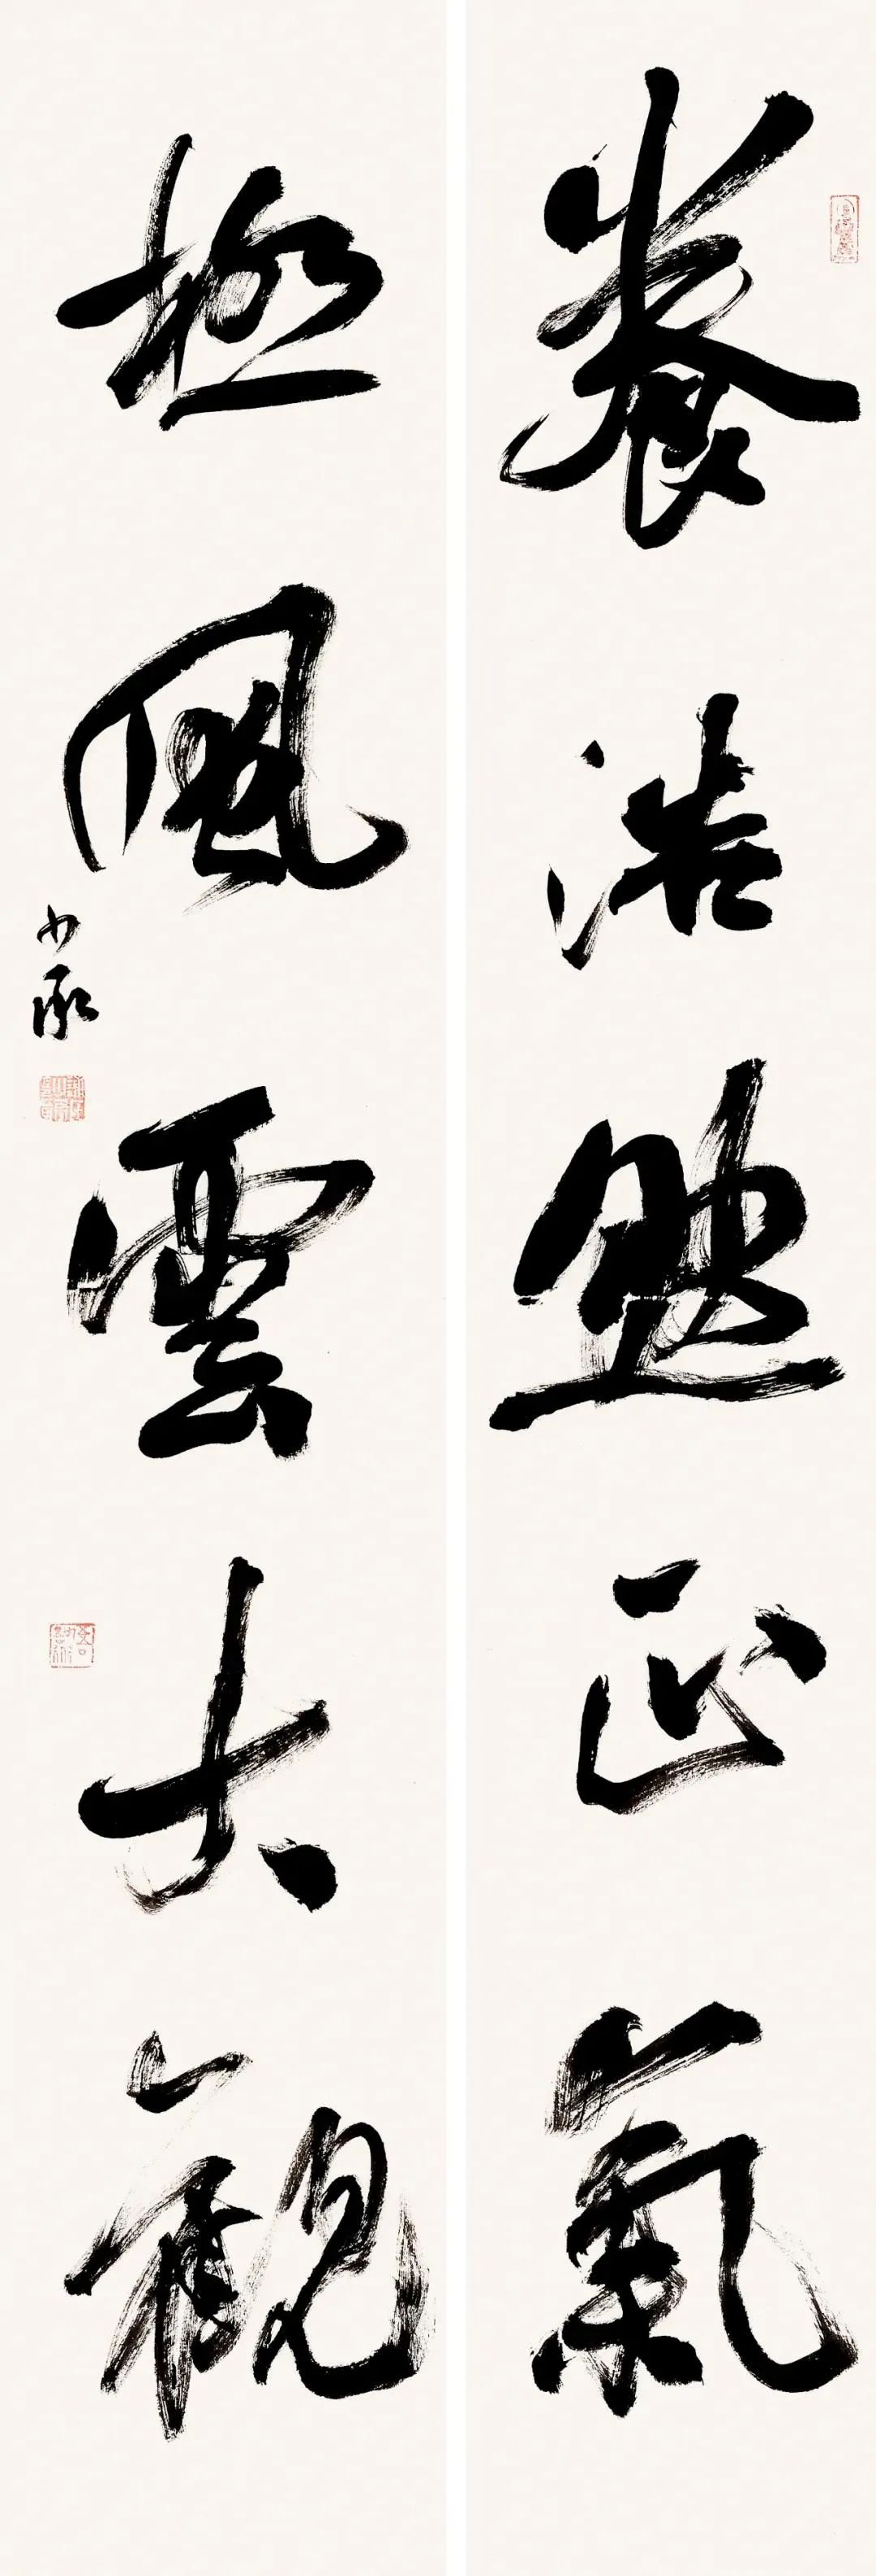 養浩然正氣
極風雲大觀
少承